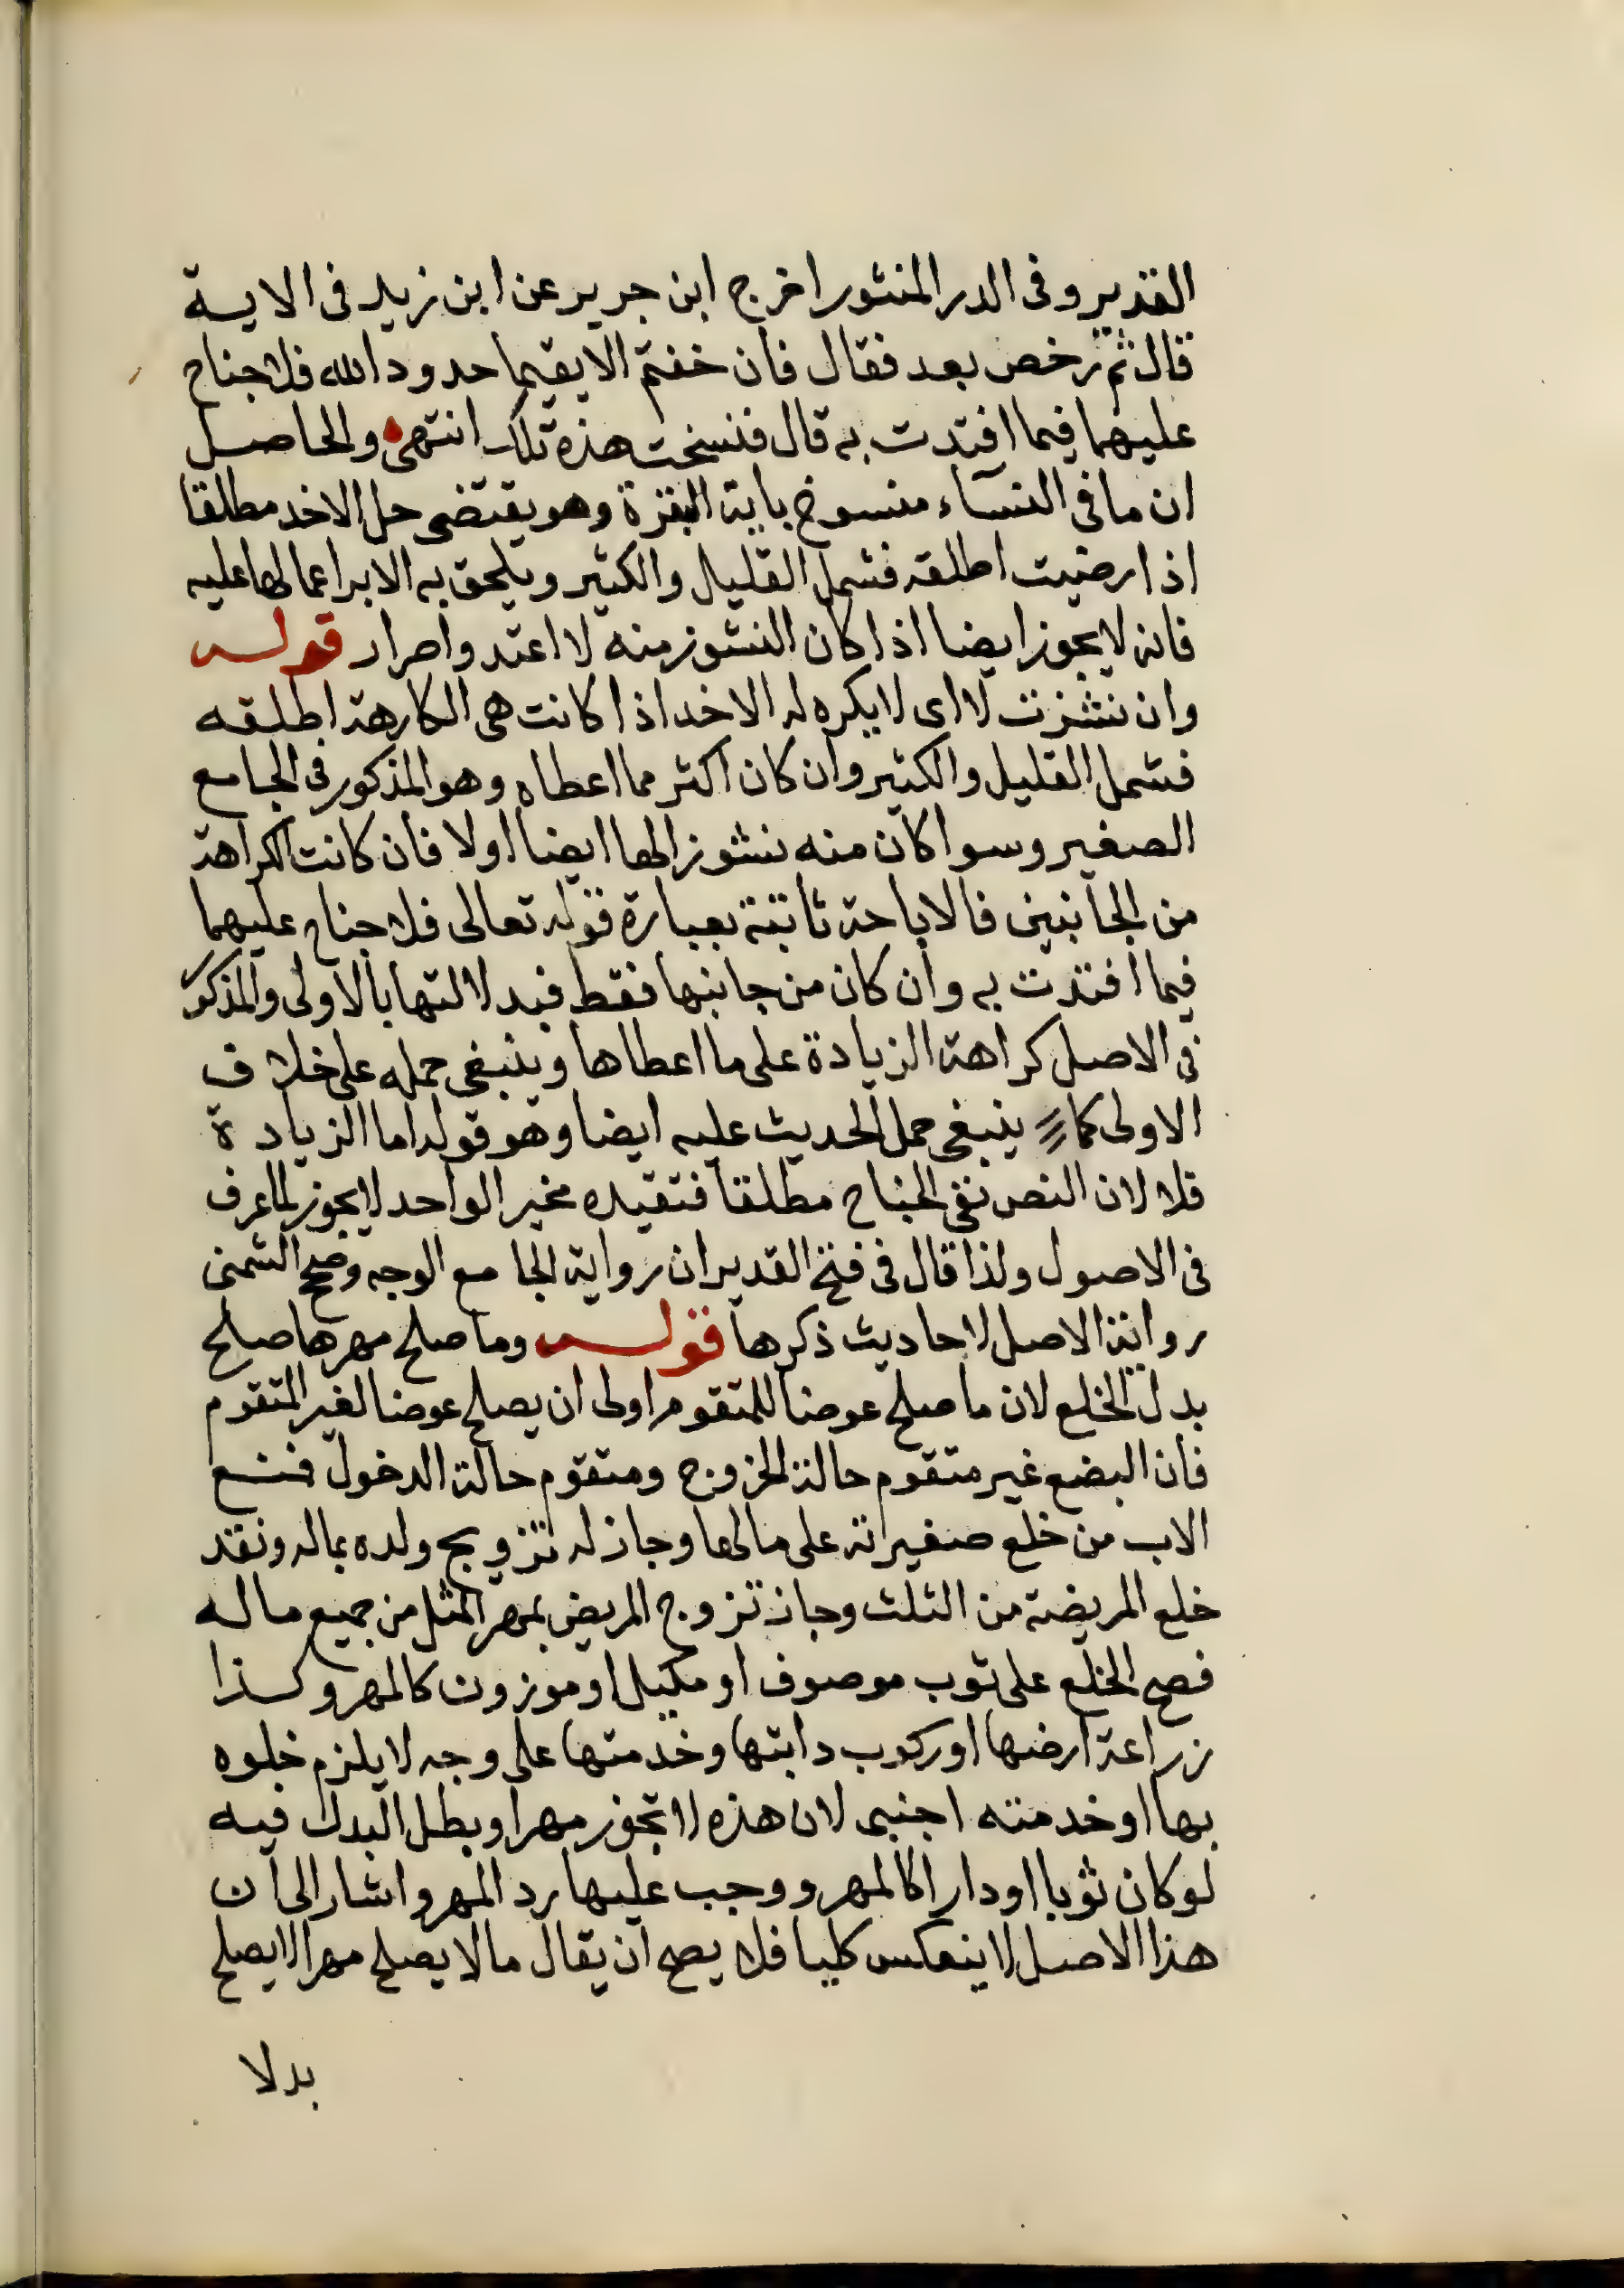 القدير وفى الدر المنثور اخرج ابن جرير عن ابن زيد فى الاية
قال ثم رخص بعد فقال فان خفتم الا يقيما حدود الله فلا جناح
عليهما فيما افتدت به قال فنسخت هذه تلك انتهى والحاصل
ان ما فى النساء منسوخ باية البقرة وهو يقتضى حل الاخد مطلقا
اذا رضيت اطلقه فشمل القليل والكثير ويلحق به الابرا عما لها عليه
فانه لا يجوز ايضا اذا كان النشوز منه لا اعتد واصرار قوله
وان نشزت لا اى لا يكره له الاخد اذا كانت هى الكارهة اطلقه
فشمل القليل والكثير وان كان اكثر مما اعطاه وهو المذكور فى الجامع
الصغير وسوا كان منه نشوز الها ايضا اولا فان كانت الكراهة
من الجانبين فالاباحة ثابتة بعبارة قوله تعالى فلا جناح عليهما
فيما افتدت به وان كان من جانبها فقط فبدلالتها بالاولى والمذكور
فى الاصل كراهة الزيادة على ما اعطاها وينبغى حمله على خلاف
الاولى كما ينبغى حمل الحديث عليه ايضا وهو قوله اما الزيادة
فلا لان النص نفى الجناح مطلقا فتقييده بخبر الواحد لا يجوز لما عرف
فى الاصول ولذا قال فى فتح القدير ان رواية الجامع الوجه وصحح الشمنى
رواية الاصل لاحاديث ذكرها قوله وما صلح مهرها صلح
بدل الخلع لان ما صلح عوضا للمتقوم اولى ان يصلح عوضا لغير المتقوم
فان البضع غير متقوم حالة الخروج ومتقوم حالة الدخول فمنع
الاب من خلع صغيراته على مالها وجاز له تزويج ولده بماله ونفذ
خلع المريضة من الثلث وجاز تزوج المريض بمهر المثل من جميع ماله
فصح الخلع على ثوب موصوف او مكيل او موزون كالمهر وكذا
زراعة ارضها او ركوب دابتها وخدمتها على وجه لا يلزم خلوه
بها او خدمته اجنبى لان هذه لا تجوز مهرا وبطل البدل فيه
لو كان ثوبا او دارا كالمهر ووجب عليها رد المهر واشار الى ان
هذا الاصل لا ينعكس كليا فلا يصح ان يقال ما لا يصلح مهرا لا يصلح
بدلا